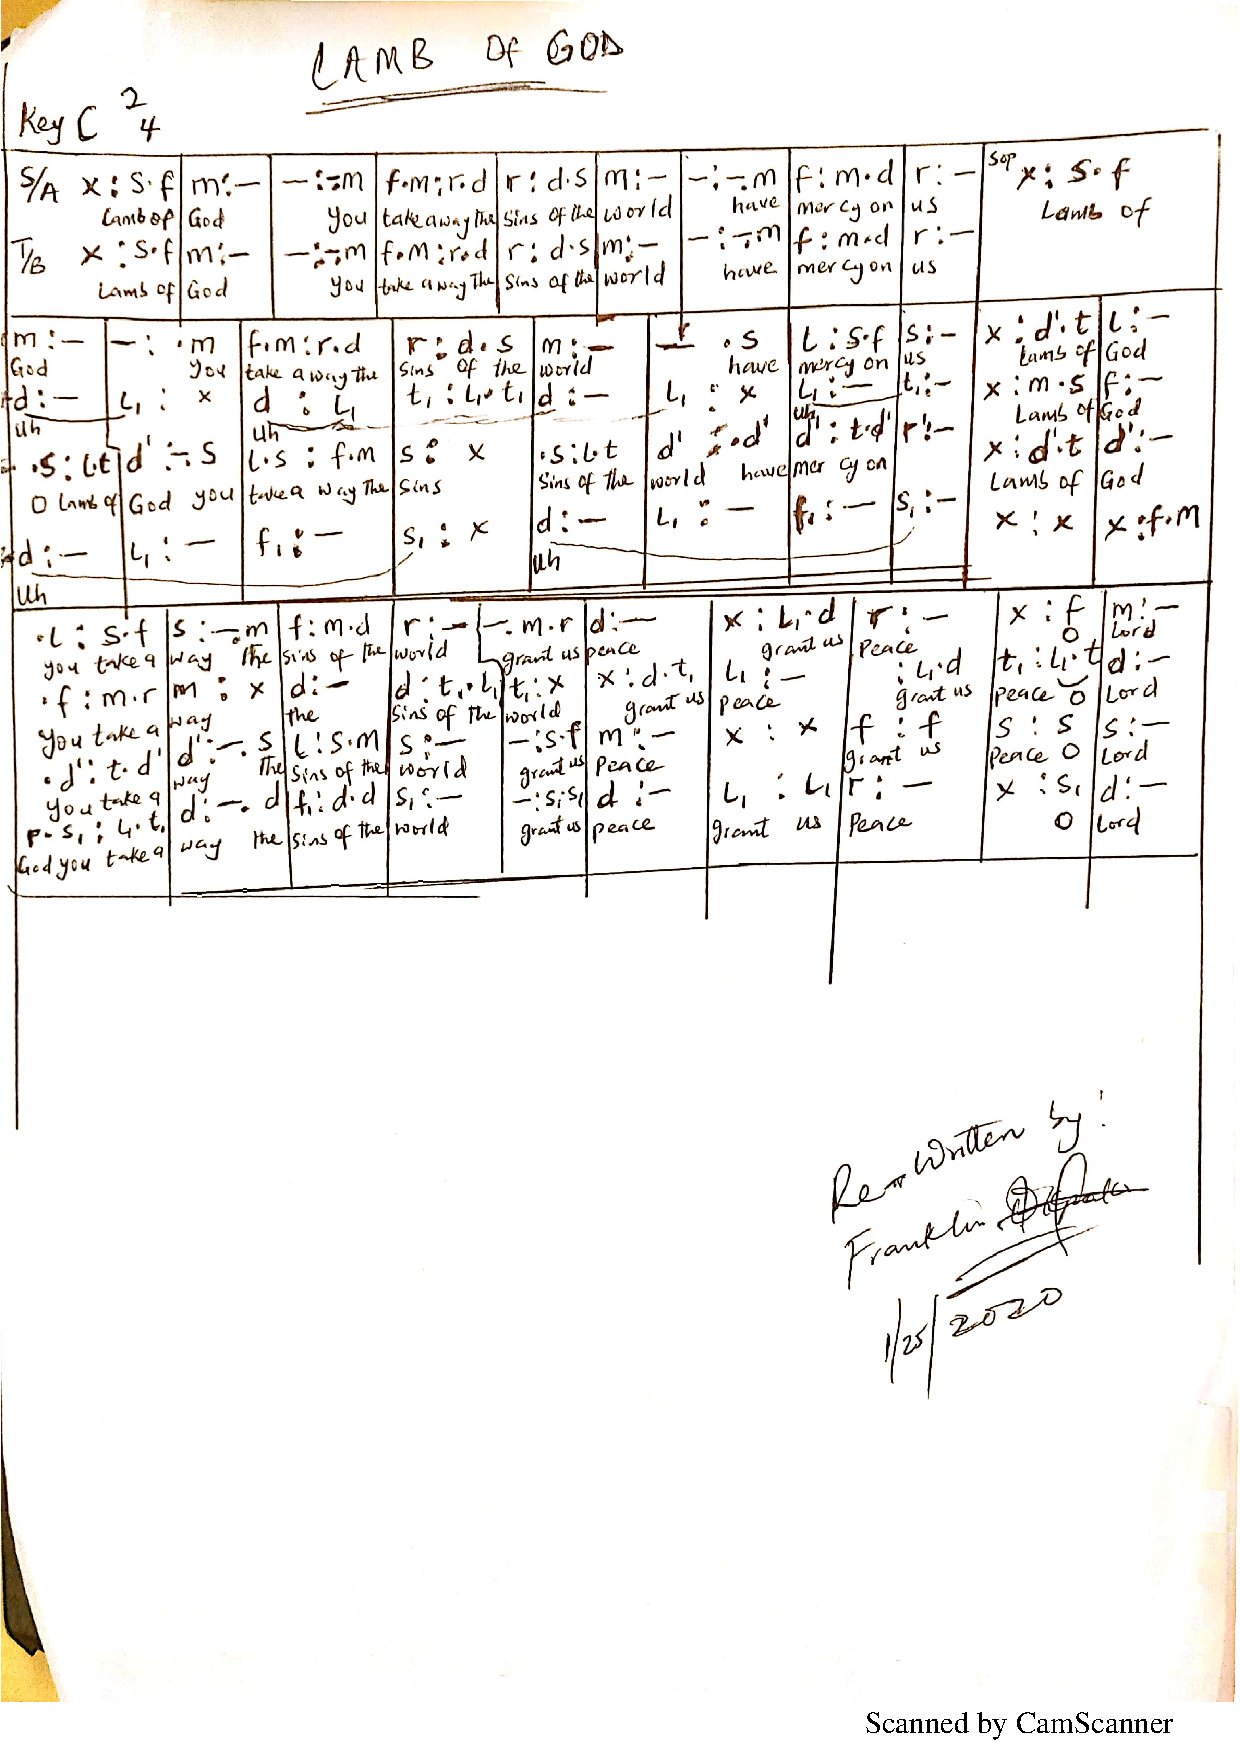 LAMB OF GOD
Key C 2/4
S/A x : s.f | m : – | – : –.m | f.m : r.d | r : d.s | m : – | – : –.m | f : m.d | r : – | Sop x : s.f
Lamb of | God | you | take away the | Sins of the | world | have | mercy on | us | Lamb of
T/B x : s.f | m : – | – : –.m | f.m : r.d | r : d.s | m : – | – : –.m | f : m.d | r : –
Lamb of | God | you | take away The | Sins of the | world | have | mercy on | us
m : – | – : .m | f.m : r.d | r : d.s | m : – | – .s | l : s.f | s : – | x : d'.t | l : –
God | you | take away the | sins of the | world | have | mercy on | us | Lamb of | God
d : – | l₁ : x | d : l₁ | t₁ : l₁.t₁ | d : – | l₁ : x | l₁ : – | t₁ : – | x : m.s | f : –
Uh | Uh | Uh | Lamb of | God
.s : l.t | d' : –.s | l.s : f.m | s : x | .s : l.t | d' : .d' | d' : t.d' | r' : – | x : d'.t | d' : –
O Lamb of | God you | take away The | Sins | Sins of the | world have | mercy on | Lamb of | God
d : – | l₁ : – | f₁ : – | s₁ : x | d : – | l₁ : – | f₁ : – | s₁ : – | x : x | x : f.m
Uh | Uh
.l : s.f | s : –.m | f : m.d | r : – | –.m.r | d : – | x : l₁.d | r : – | x : f | m : –
you take a | way the | sins of the | world | grant us | peace | grant us | Peace | O | Lord
.f : m.r | m : x | d : – | d : t₁.l₁ | t₁ : x | x : d.t₁ | l₁ : – | : l₁.d | t₁ : l₁.t | d : –
you take a | way | the | sins of the | world | grant us | peace | grant us | peace O | Lord
.d' : t.d' | d' : –.s | l : s.m | s : – | – : s.f | m : – | x : x | f : f | s : s | s : –
you take a | way The | Sins of the | world | grant us | peace | grant us | Peace O | Lord
p. s₁ : l₁.t₁ | d : –.d | f₁ : d.d | s₁ : – | – : s₁.s₁ | d : – | l₁ : l₁ | r : – | x : s₁ | d : –
God you take a | way the | sins of the | world | grant us | peace | grant us | Peace | O | Lord
Re-Written by:
Franklin
1/25/2020
Scanned by CamScanner